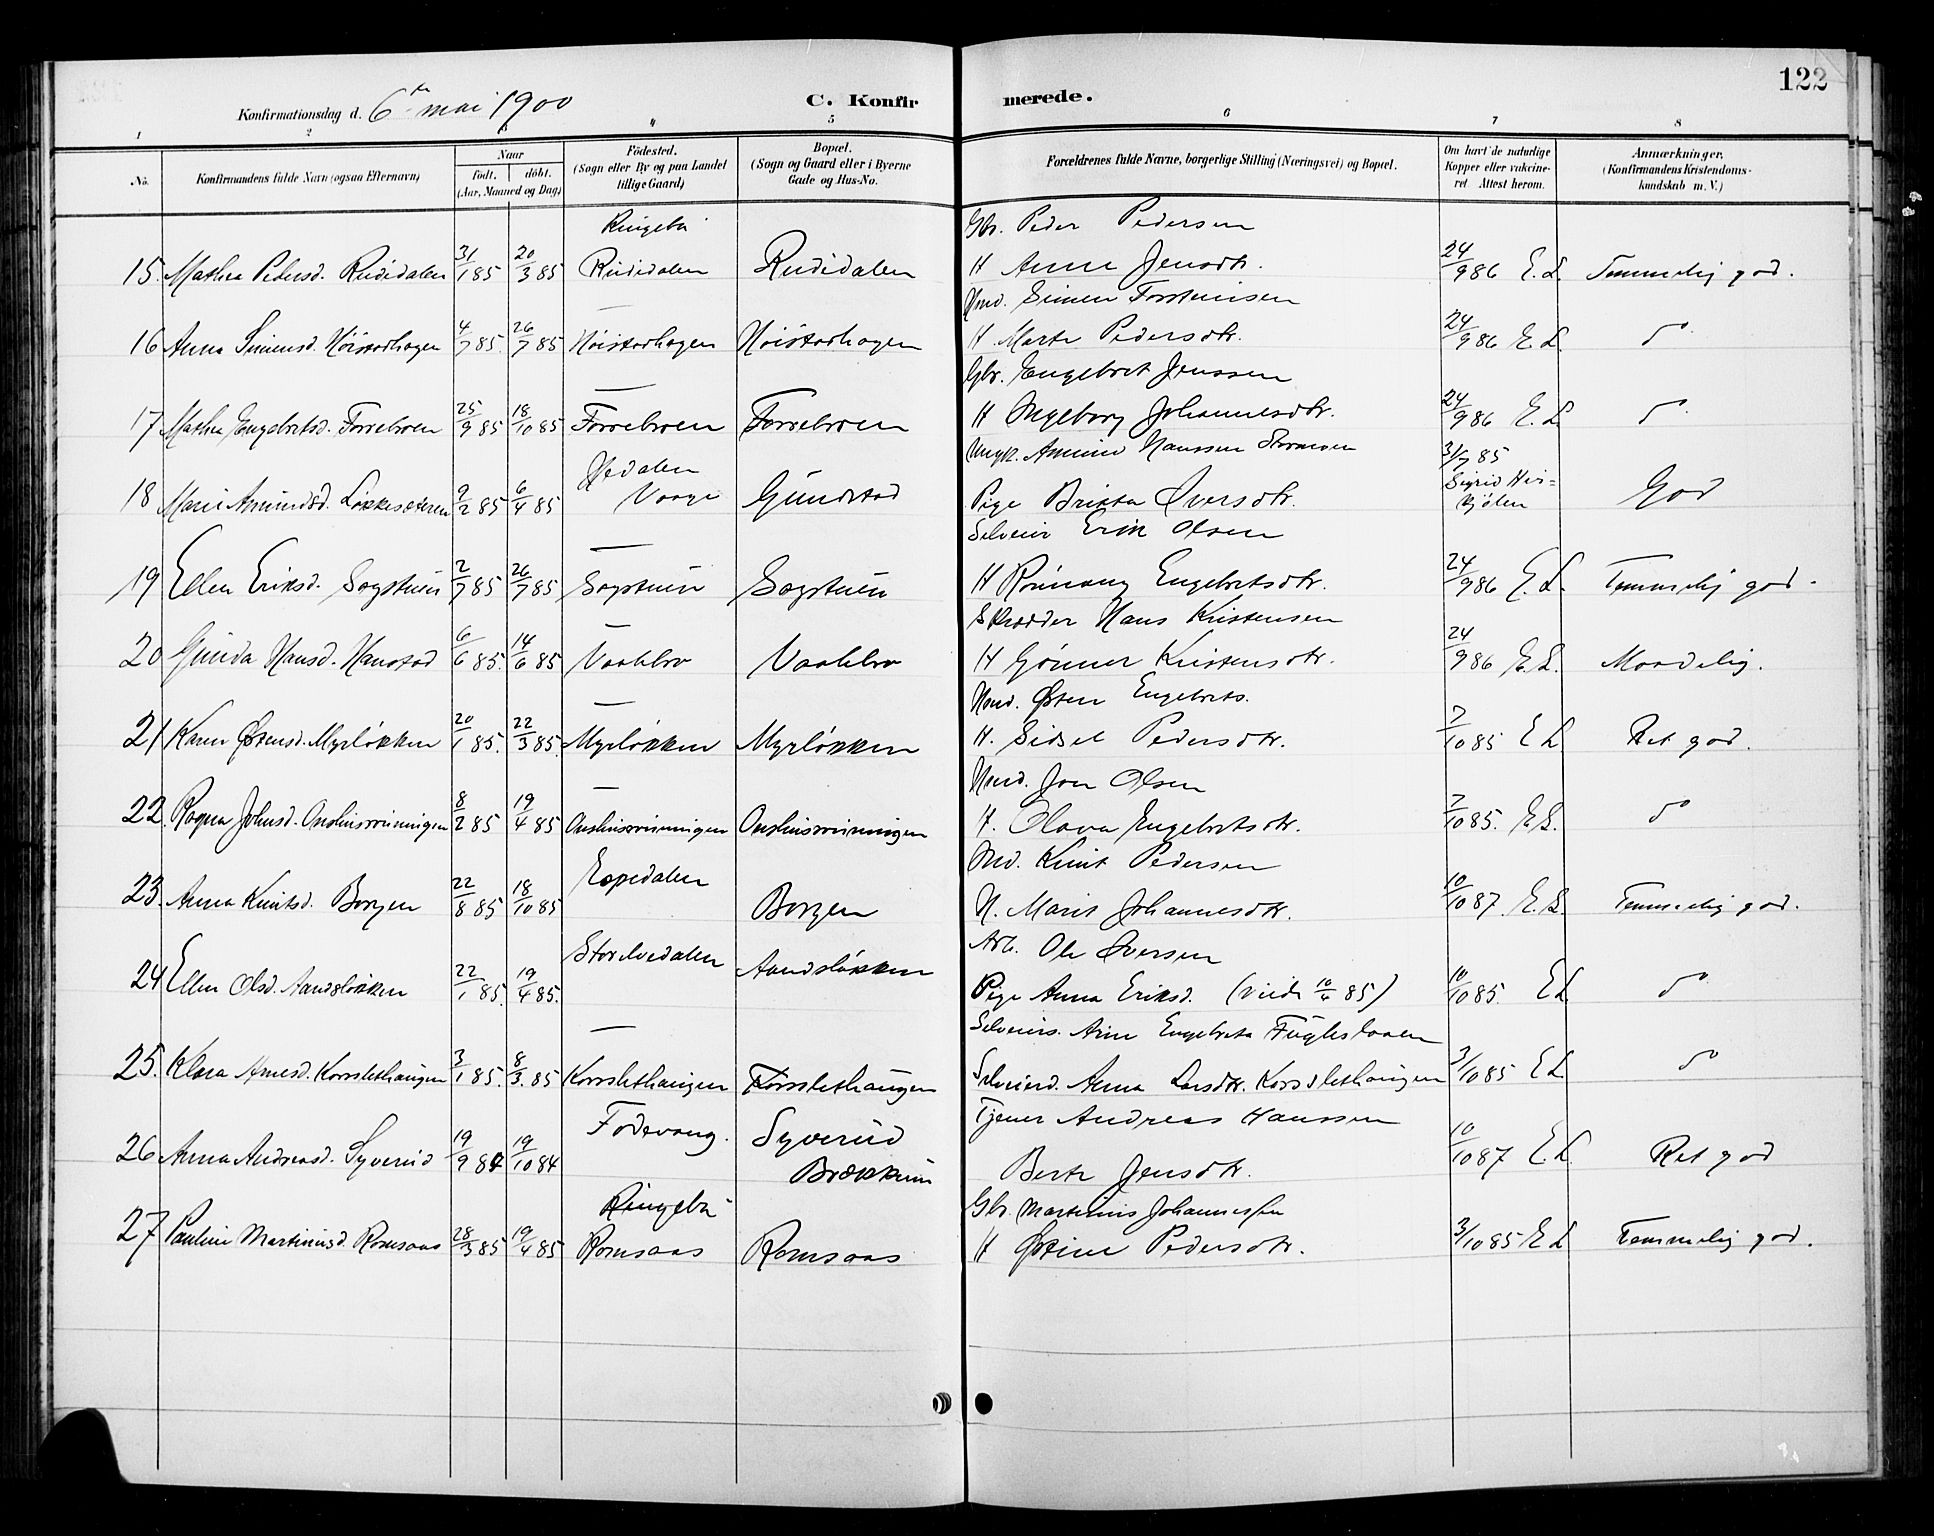 122
Konfirmationsdag d. 6te mai 1900 C. Konfirmerede.
1 2 3 4 5 6 7 8
No. Konfirmandens fulde Navn (ogsaa Efternavn) Naar födt. döbt. (Aar, Maaned og Dag) Födested. (Sogn eller By og paa Landet tillige Gaard) Bopæl. (Sogn og Gaard eller i Byerne Gade og Hus-No. Forældrenes fulde Navne, borgerlige Stilling (Næringsvei) og Bopæl. Om havt de naturlige Kopper eller vakcineret Attest herom. Anmærkninger. (Konfirmandens Kristendomskundskab m. V.)
Ringebu Gbr. Peder Pedersen
15. Mathea Pedersd. Rudidalen 31/1 85 20/3 85 Rudidalen Rudidalen H Anne Jensdtr. 24/9 86 E. L. Temmelig god.
— Hmd. Simen Torstensen
16 Anna Simensd. Höistadhagen 4/7 85. 26/7 85 Höistadhagen Höistadhagen H. Marte Pedersdtr. 24/9 86 E. L. do
— Gbr. Engebret Jenssen
17 Mathea Engebretsd. Forrebroen 25/9 85 18/10 85 Forrebroen Forrebroen H Ingeborg Johannesdtr. 24/9 86 E. L do
Hedalen Ungk. Amund Hanssen
18 Marie Amundsd. Løkkesæteren 2/2 85 6/4 85 Vaage Gundstad Pige Britta Iversdtr. 3/7 85 Sigrid God
— Selveier Erik Olsen
19 Ellen Eriksd. Sogstuen 2/7 85 26/7 85 Sogstuen Sogstuen H Rønnaug Engebretsdtr. 24/9 86 E. L. Temmelig god.
— Skrædder Hans Kristensen
20 Gunda Hansd. Hanstad 6/6 85. 14/6 85 Vaalebro Vaalebro H Gønner Kristensdtr. 24/9 86 E. L. Maadelig.
— Hmd. Østen Engebrets.
21 Karen Østensd. Myrløkken 20/1 85. 22/3 85 Myrløkken Myrløkken H. Sidsel Pedersdtr. 7/10 85 E L Ret god.
— Hmd. Jon Olsen
22. Ragna Johnsd. Onshusrønningen 8/2 85 19/4 85 Onshusrønningen Onshusrønningen H. Olava Engebretsdtr. 7/10 85. E. L. do
Espedalen Md. Knut Pedersen
23. Anna Knutsd. Borgen 22/8 85 18/10 85 Borgen H. Marit Johannesdtr. 10/10 87 E. L. Temmelig god.
Storelvedalen Arb. Ole Iversen
24 Ellen Olsd. Aandsløkken 22/1 85. 19/4 85. Aandsløkken Pige Anna Eriksd. (viede 10/4 85) 10/10 85. E L do
— Selveiers. Arne Engebrets
25. Klara Arnesd. Korsslethaugen 3/1 85. 8/3. 85 Korsslethaugen Korsslethaugen Selveierd. Anna Larsdtr. Korsslethaugen 3/10 85 E L. do
Fodevang. Syverud Tjener Andreas Hanssen
26 Anna Andreasd. Syverud 19/9 84 19/10 84 Brækkum Berte Jensdtr. 10/10 87 E. L. Ret god
Ringebu Gbr. Martinius Johannessen
27 Pauline Martiniusd. Romsaas 28/3 85 19/4 85 Romsaas Romsaas H Østine Pedersdtr. 3/10 85 E L Temmelig god.